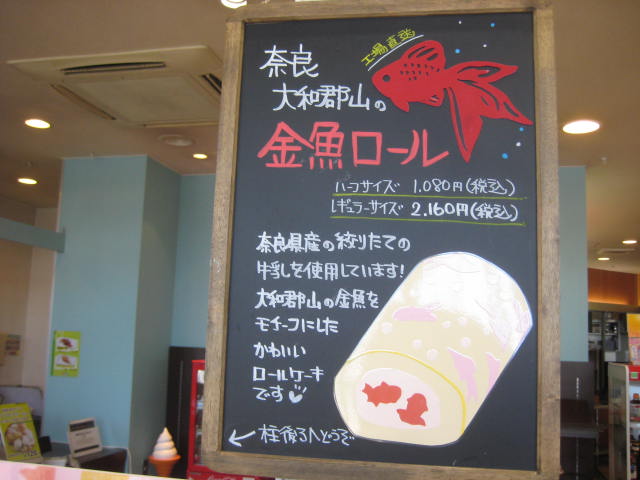 工場直送
奈良
大和郡山の
金魚ロール
ハーフサイズ 1,080円(税込)
レギュラーサイズ 2,160円(税込)
奈良県産の絞りたての
牛乳を使用しています!
大和郡山の金魚を
モチーフにした
かわいい
ロールケーキ
です
← 柱後ろへどうぞ